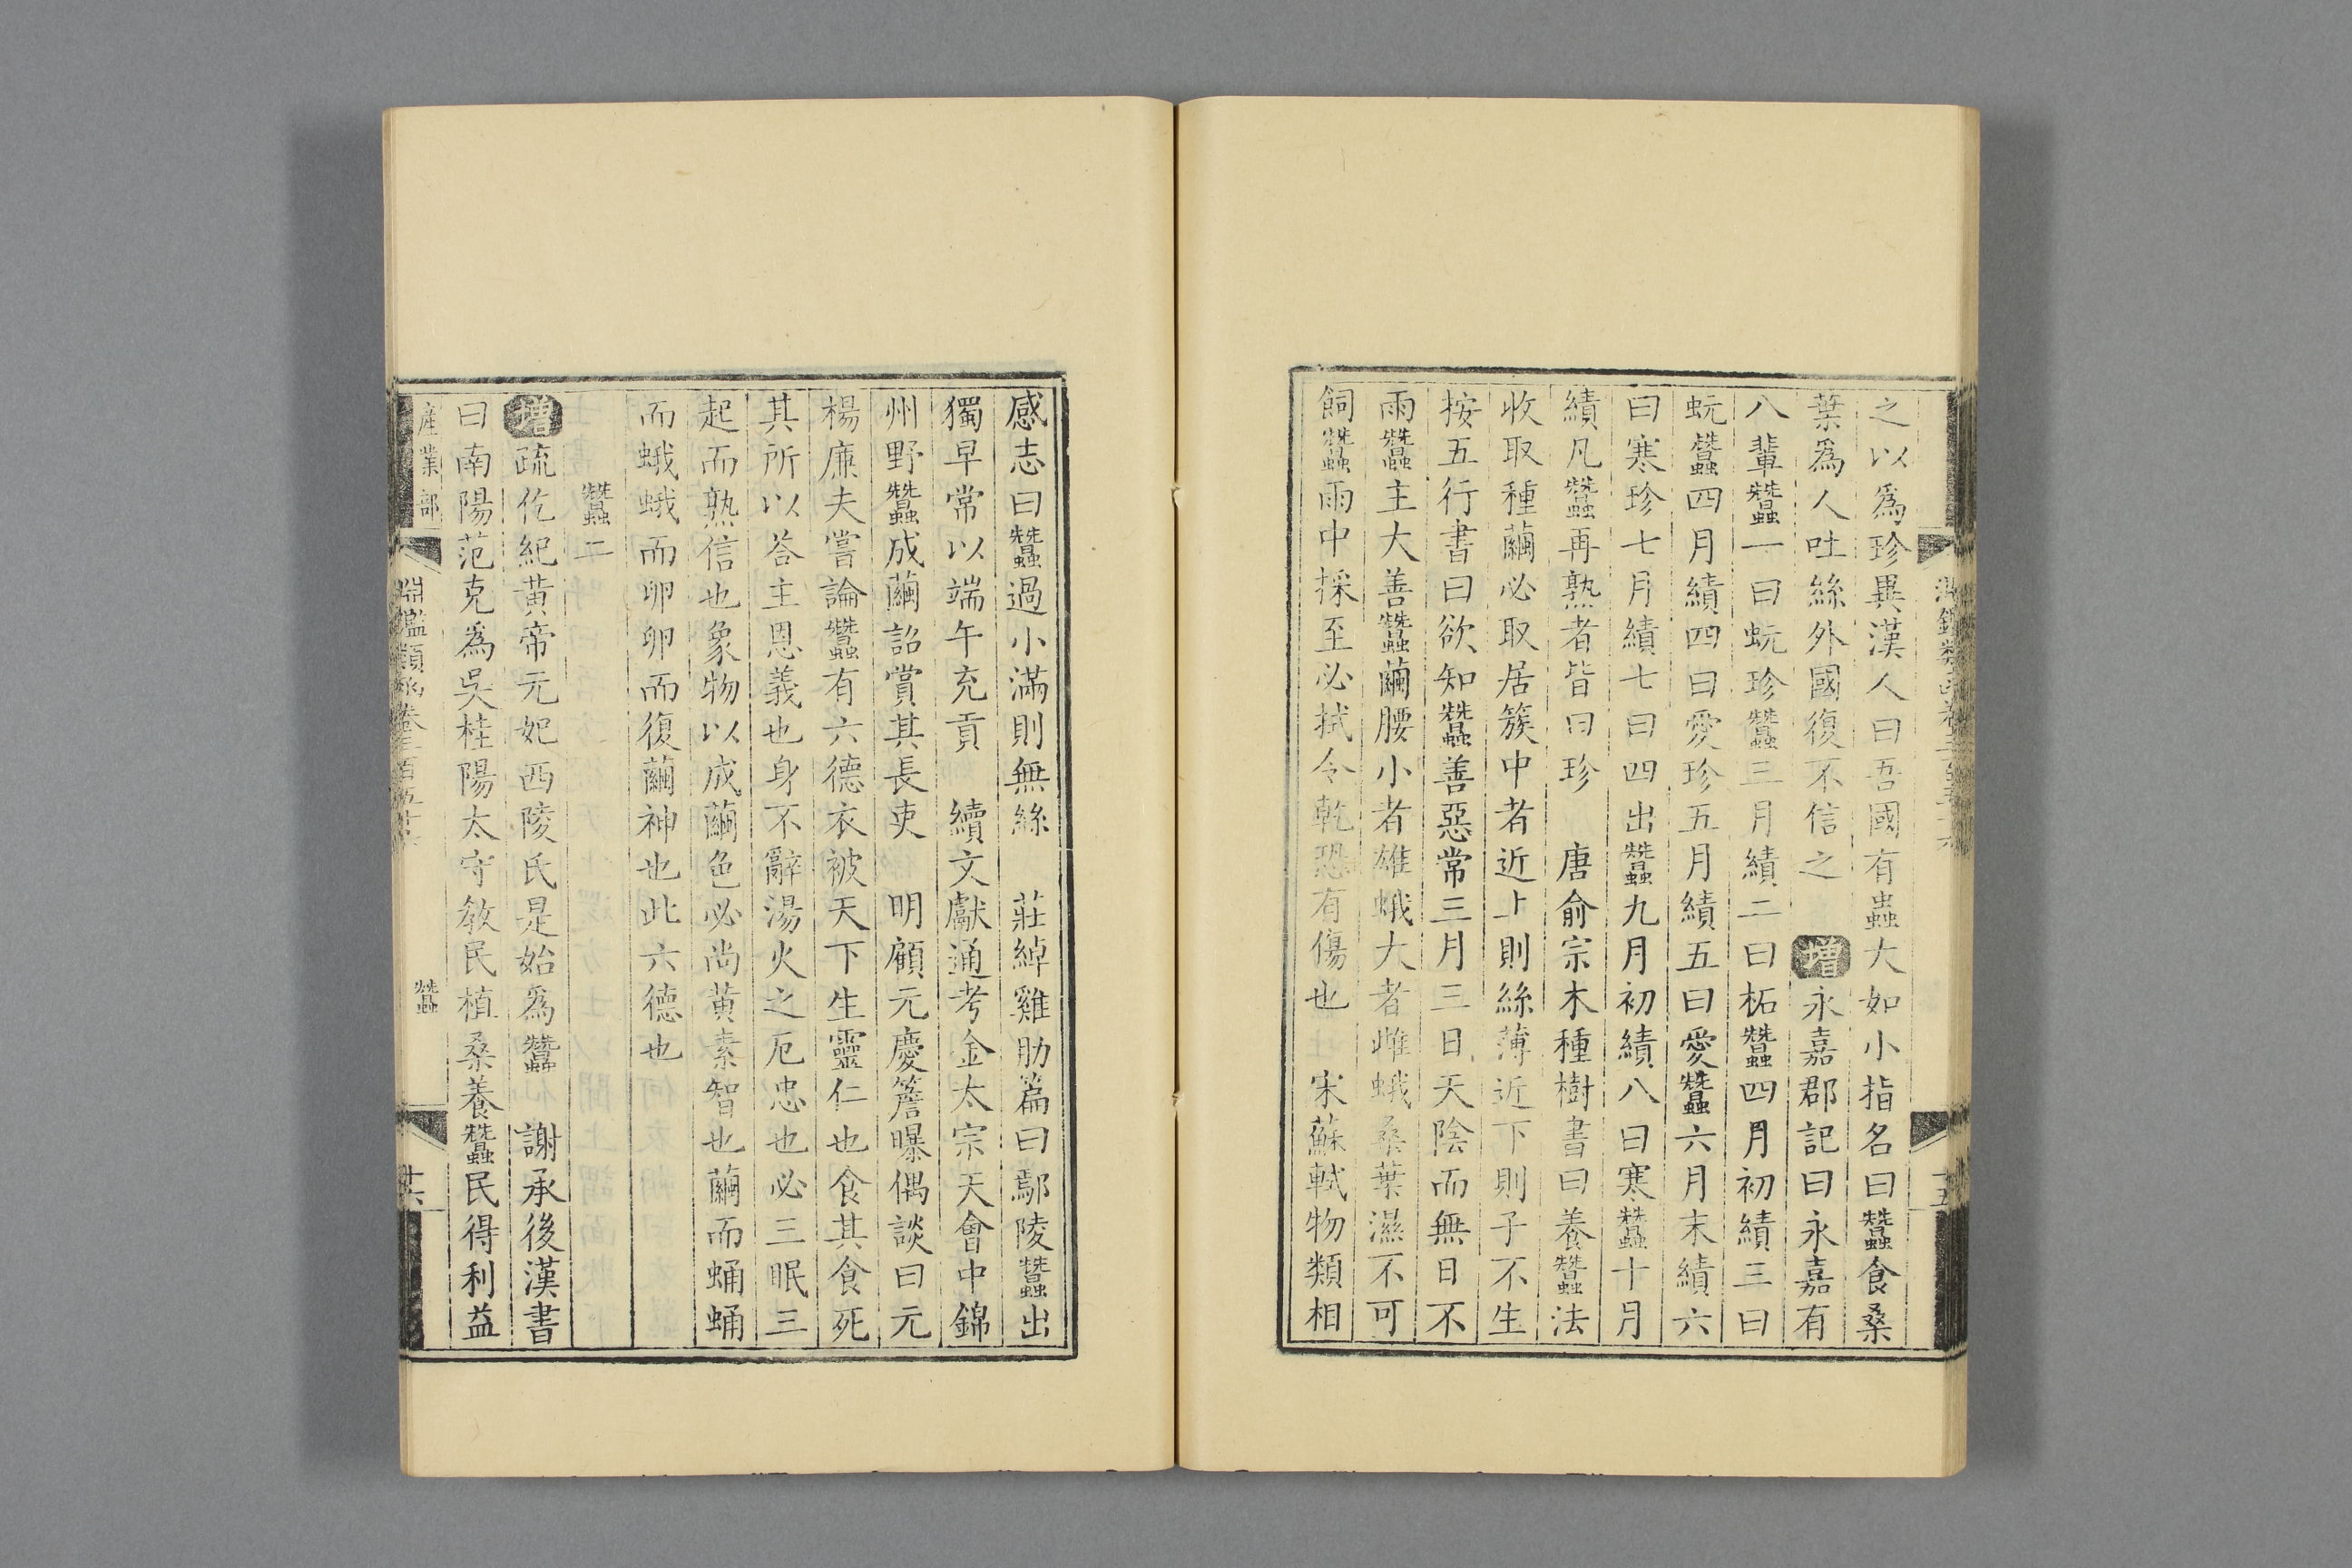 之以爲珍異漢人曰吾國有蟲大如小指名曰蠶食桑
葉爲人吐絲外國復不信之 增 永嘉郡記曰永嘉有
八輩蠶一曰蚖珍蠶三月績二曰柘蠶四月初績三曰
蚖蠶四月績四曰愛珍五月績五曰愛蠶六月末績六
曰寒珍七月績七曰四出蠶九月初績八曰寒蠶十月
績凡蠶再熟者皆曰珍 唐俞宗木種樹書曰養蠶法
收取種繭必取居簇中者近上則絲薄近下則子不生
按五行書曰欲知蠶善惡常三月三日天陰而無日不
雨蠶主大善蠶繭腰小者雄蛾大者雌蛾桑葉濕不可
飼蠶雨中採至必拭令乾恐有傷也 宋蘇軾物類相
感志曰蠶過小滿則無絲 莊綽雞肋篇曰鄢陵蠶出
獨早常以端午充貢 續文獻通考金太宗天會中錦
州野蠶成繭詔賞其長吏 明顧元慶簷曝偶談曰元
楊廉夫嘗論蠶有六德衣被天下生靈仁也食其食死
其所以答主恩義也身不辭湯火之厄忠也必三眠三
起而熟信也象物以成繭色必尚黃素智也繭而蛹蛹
而蛾蛾而卵卵而復繭神也此六德也
蠶二
增疏仡紀黃帝元妃西陵氏是始爲蠶 謝承後漢書
曰南陽范充爲吳桂陽太守敎民植桑養蠶民得利益
產業部
淵鑑類函卷三百五十
蠶
十六